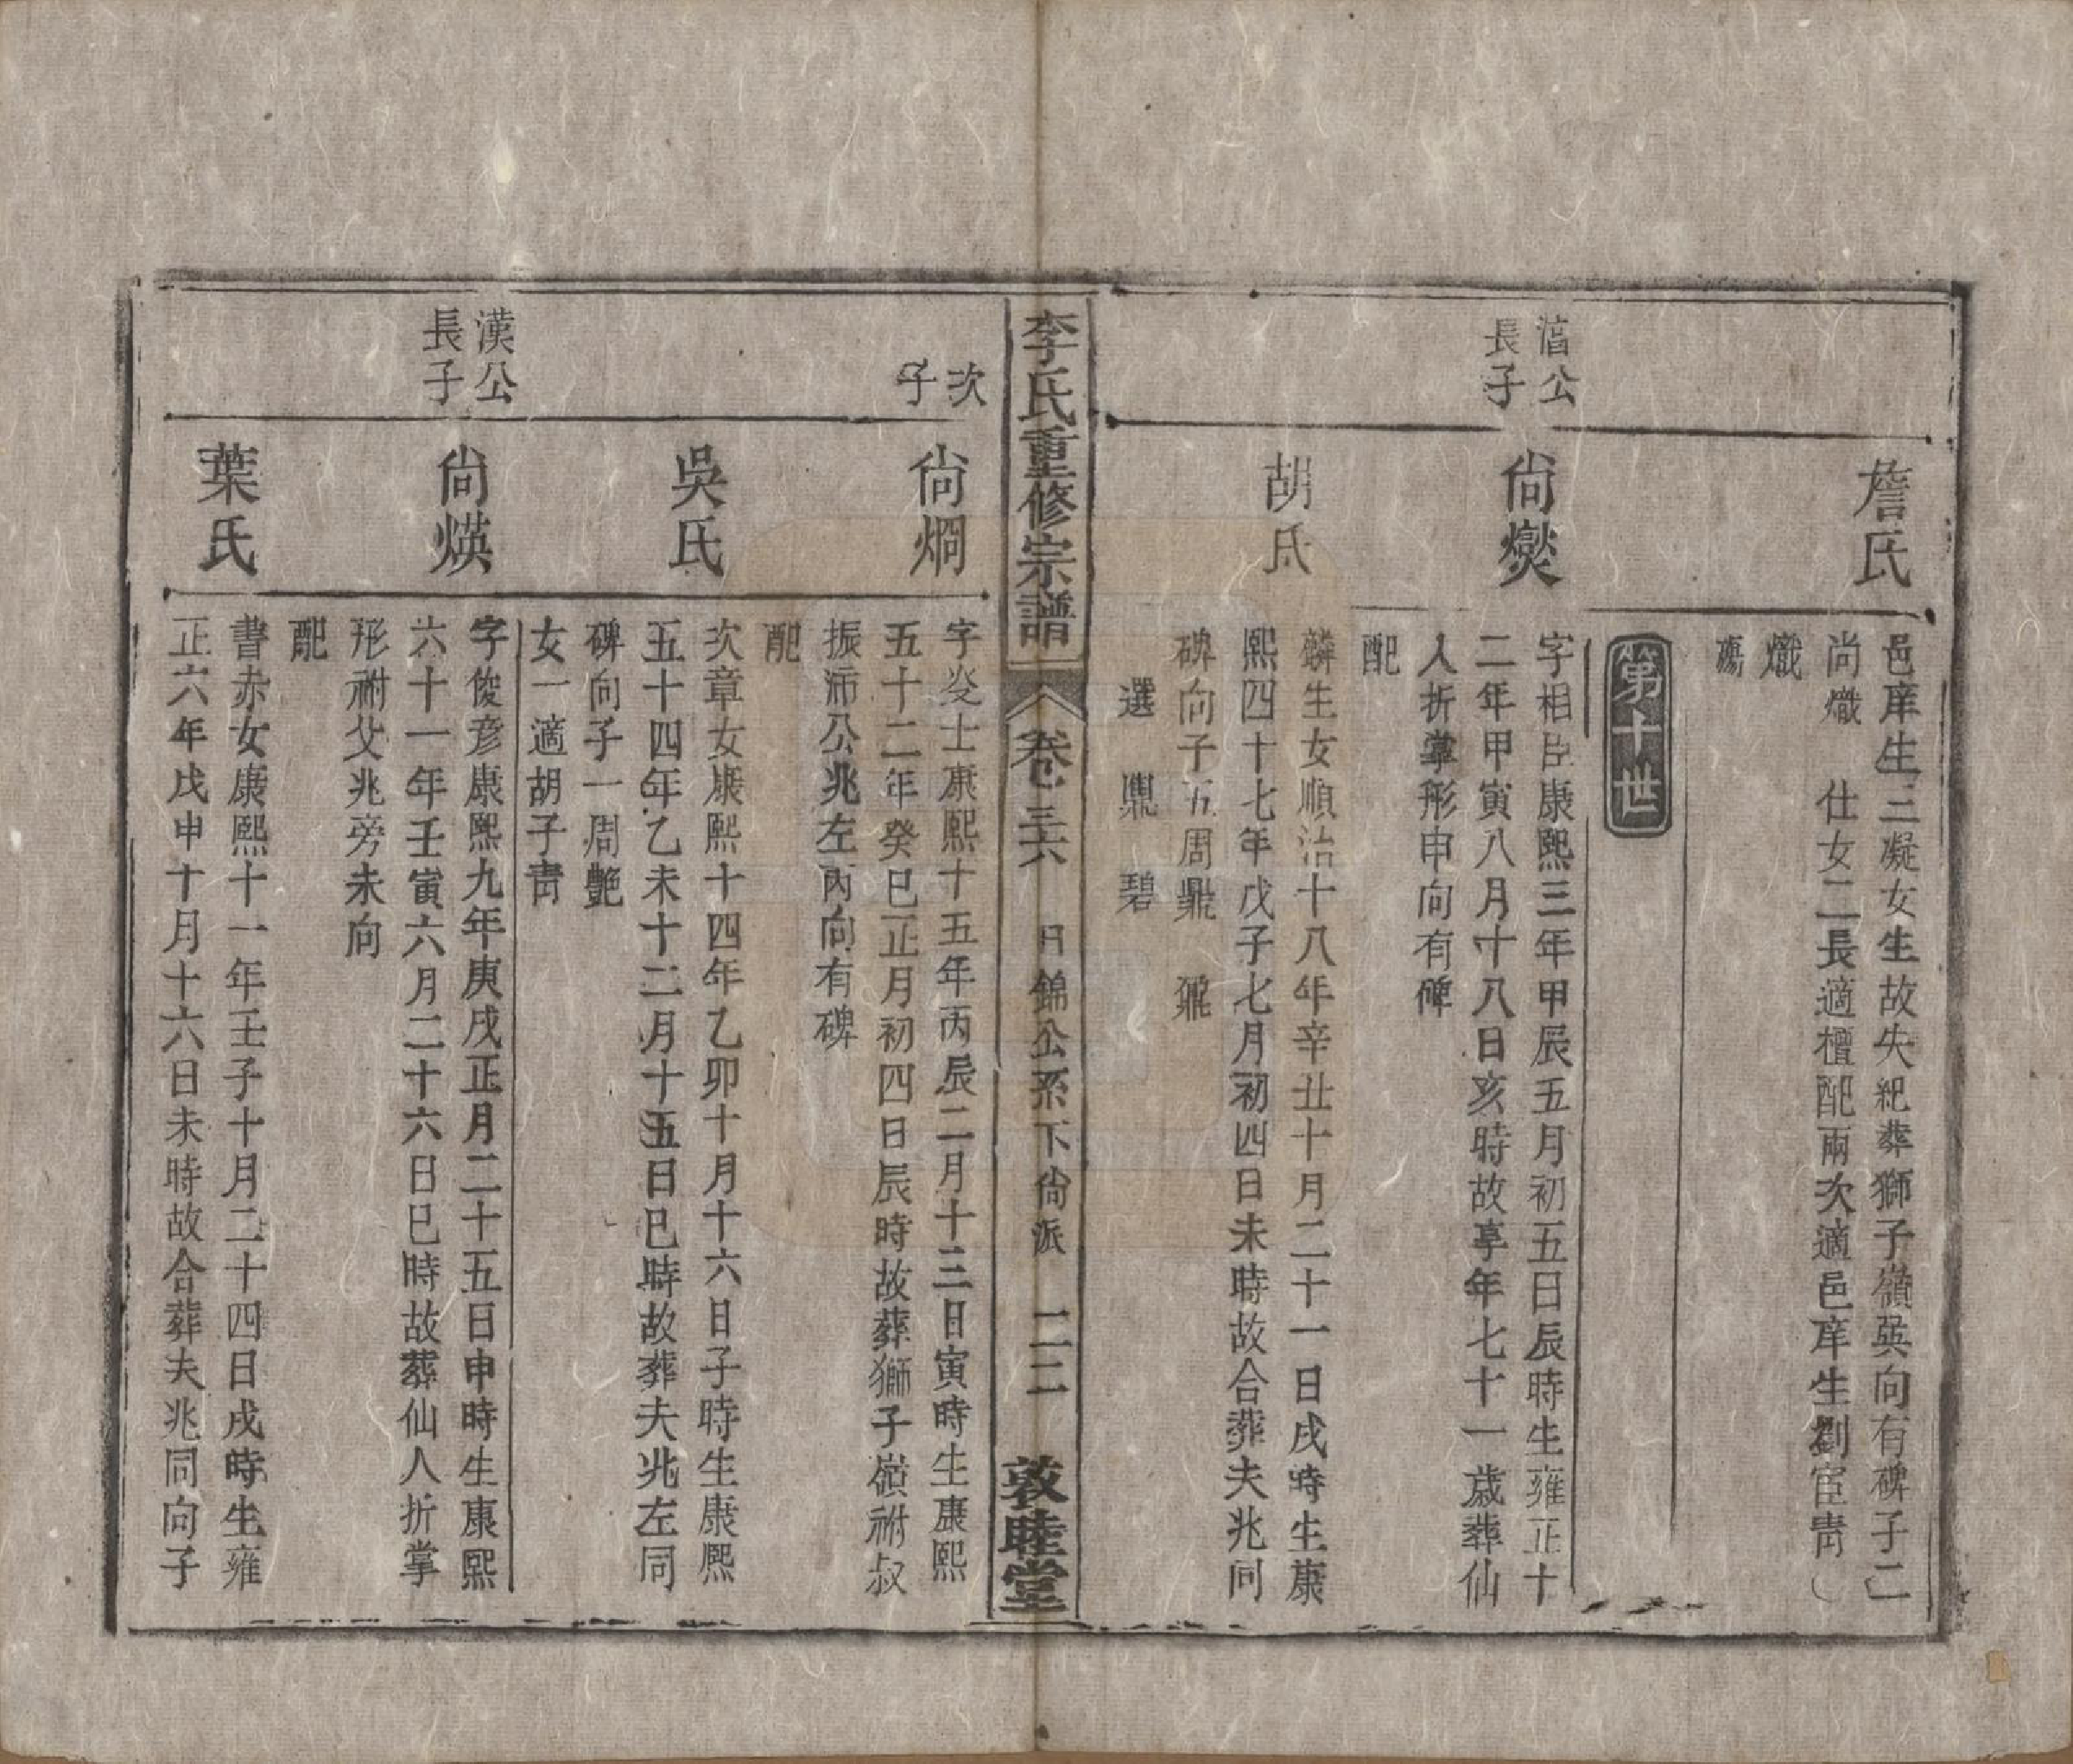 詹氏
邑庠生三凝女生故失紀葬獅子嶺巽向有碑子二
尚熾　仕女二長適檀配兩次適邑庠生劉宦青
熾
殤
第十世
湻公
長子
尙爕
字相臣康熙三年甲辰五月初五日辰時生雍正十
二年甲寅八月十八日亥時故享年七十一歲葬仙
人折掌形申向有碑
配
胡氏
麟生女順治十八年辛丑十月二十一日戌時生康
熙四十七年戊子七月初四日未時故合葬夫兆同
碑向子五周鼎　鼐
選　鼎　碧
李氏重修宗譜
卷三六
日錦公系下尙派
二二
敦睦堂
次
子
尙烱
字炎士康熙十五年丙辰二月十三日寅時生康熙
五十二年癸巳正月初四日辰時故葬獅子嶺祔叔
振沛公兆左丙向有碑
配
吳氏
次章女康熙十四年乙卯十月十六日子時生康熙
五十四年乙未十二月十五日巳時故葬夫兆左同
碑向子一周艷
女一適胡子青
漢公
長子
尙煐
字俊彦康熙九年庚戌正月二十五日申時生康熙
六十一年壬寅六月二十六日巳時故葬仙人折掌
形祔父兆旁未向
配
葉氏
書赤女康熙十一年壬子十月二十四日戌時生雍
正六年戊申十月十六日未時故合葬夫兆同向子